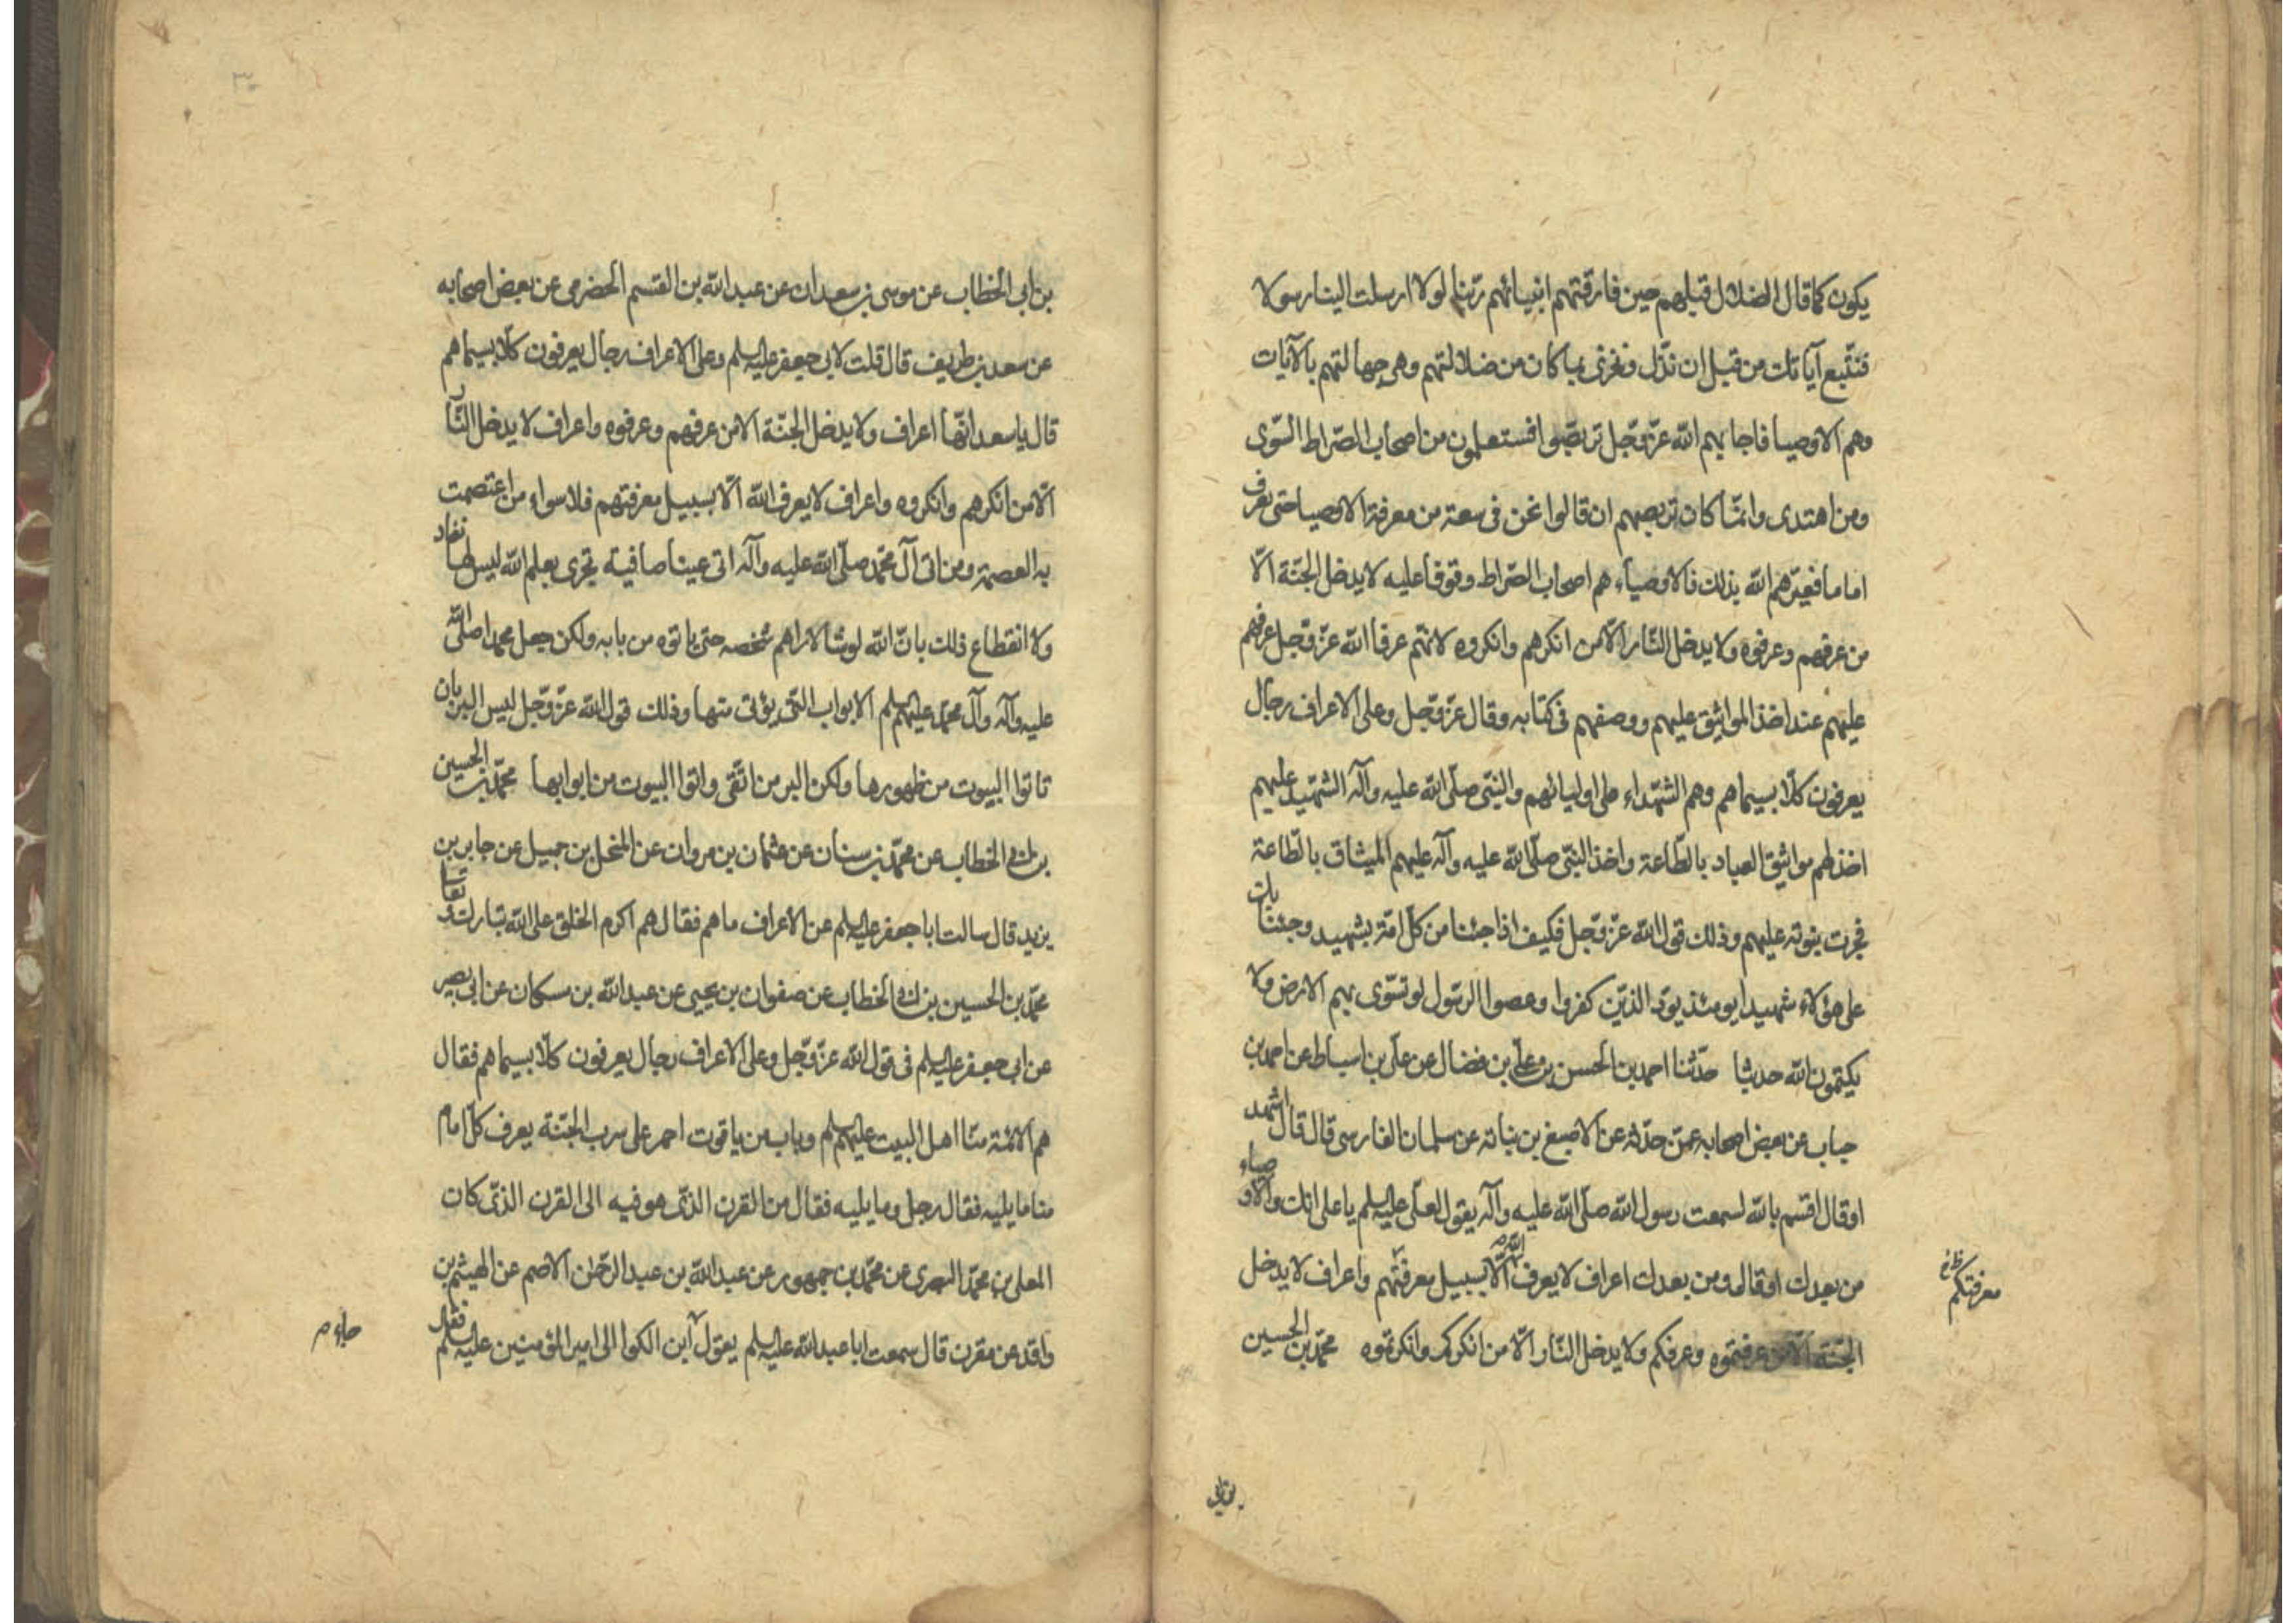 يكون كما قال الضلال قبلهم حين فارقتهم انبيائهم ربّنا لولا ارسلت الينا رسولا
فنتّبع آياتك من قبل ان نذل ونخزى بما كان من ضلالتهم وهى جهالتهم بالآيات
وهم الاوصيا فاجابهم الله عزّ وجّل تربصّوا فستعلمون من اصحاب الصّراط السّوى
ومن اهتدى وانّما كان تربصهم ان قالوا نحن فى سعة من معرفة الاوصيا حتى يعرف
اماما فعيّرهم الله بذلك فالاوصياء هم اصحاب الصّراط وقوفا عليه لا يدخل الجنّة الّا
من عرفهم وعرفوه ولا يدخل النّار الّا من انكرهم وانكروه لانهّم عرفا الله عزّ وجّل عرفهم
عليهم عند اخذ المواثيق عليهم ووصفهم فى كتابه وقال عزّ وجّل وعلى الاعراف رجال
يعرفون كلّا بسيماهم وهم الشهّداء على اوليائهم والنبّى صلّى الله عليه وآله الشهّيد عليهم
اخذ لهم مواثيق العباد بالطّاعة واخذ النبّى صلّى الله عليه وآله عليهم الميثاق بالطّاعة
فجرت نبوته عليهم وذلك قول الله عزّ وجّل فكيف اذا جئنا من كلّ امّة بشهيد وجئنا بك
على هؤلاء شهيدا يومئذ يودّ الذيّن كفروا وعصوا الرسّول لو تسوّى بهم الارض ولا
يكتمون الله حديثا حدّثنا احمد بن الحسن بن علّى بن فضال عن علّى بن اسباط عن احمد بن
حباب عن بعض اصحابه عمّن حدّثه عن الاصبغ بن نباته عن سلمان الفارسى قال قال اشهد
او قال اقسم بالله لسمعت رسول الله صلّى الله عليه وآله يقول لعلّى عليه السلم يا على انك والاوصياء
من بعدك او قال ومن بعدك اعراف لا يعرف الله الّا بسبيل معرفتهم واعراف لا يدخل
معرفتكم
الجنّة الّا من عرفتموه وعرفكم ولا يدخل النّار الّا من انكركم وانكرتموه محمّد بن الحسين
بن ابى الخطاب عن موسى بن سعدان عن عبد الله بن القسم الحضرمى عن بعض اصحابه
عن سعد بن طريف قال قلت لابى جعفر عليه السلم وعلى الاعراف رجال يعرفون كلّا بسيماهم
قال يا سعد انّها اعراف ولا يدخل الجنّة الا من عرفهم وعرفوه واعراف لا يدخل النّار
الّا من انكرهم وانكروه واعراف لا يعرف الله الّا بسبيل معرفتهم فلا سواء من اعتصمت
به العصمة ومن اتى آل محّمد صلّى الله عليه وآله اتى عينا صافية تجرى بعلم الله ليس لها نفاد
ولا انقطاع ذلك بانّ الله لو شا لاراهم شخصه حتى ياتوه من بابه ولكن جعل محمدا صلّى الله
عليه وآله وآل محمّد عليهم السلم الابواب التّى يؤتى منها وذلك قول الله عزّ وجّل ليس البر بان
تاتوا البيوت من ظهورها ولكن البر من اتّقى واتوا البيوت من ابوابها محمّد بن الحسين
بن ابى الخطاب عن محمّد بن سنان عن عثمان بن مروان عن المنخل بن جميل عن جابر بن
يزيد قال سالت ابا جعفر عليه السلم عن الاعراف ما هم فقال هم اكرم الخلق على الله تبارك وتعا
محمّد بن الحسين بن ابى الخطاب عن صفوان بن يحيى عن عبد الله بن مسكان عن ابى بصير
عن ابى جعفر عليه السلم فى قول الله عزّ وجّل وعلى الاعراف رجال يعرفون كلّا بسيماهم فقال
هم الائمّة منّا اهل البيت عليهم السلم وباب من ياقوت احمر على سرب الجنّة يعرف كلّ امام
منا ما يليه فقال رجل وما يليه فقال من القرن الذّى هو فيه الى القرن الذّى كان
المعلى بن محمّد البصرى عن محمّد بن جمهور عن عبد الله بن عبد الرحّمن الاصم عن الهيثم بن
واقد عن مقرن قال سمعت ابا عبد الله عليه السلم يقول ابن الكوا الى امير المؤمنين عليه السلم فقال
جاء